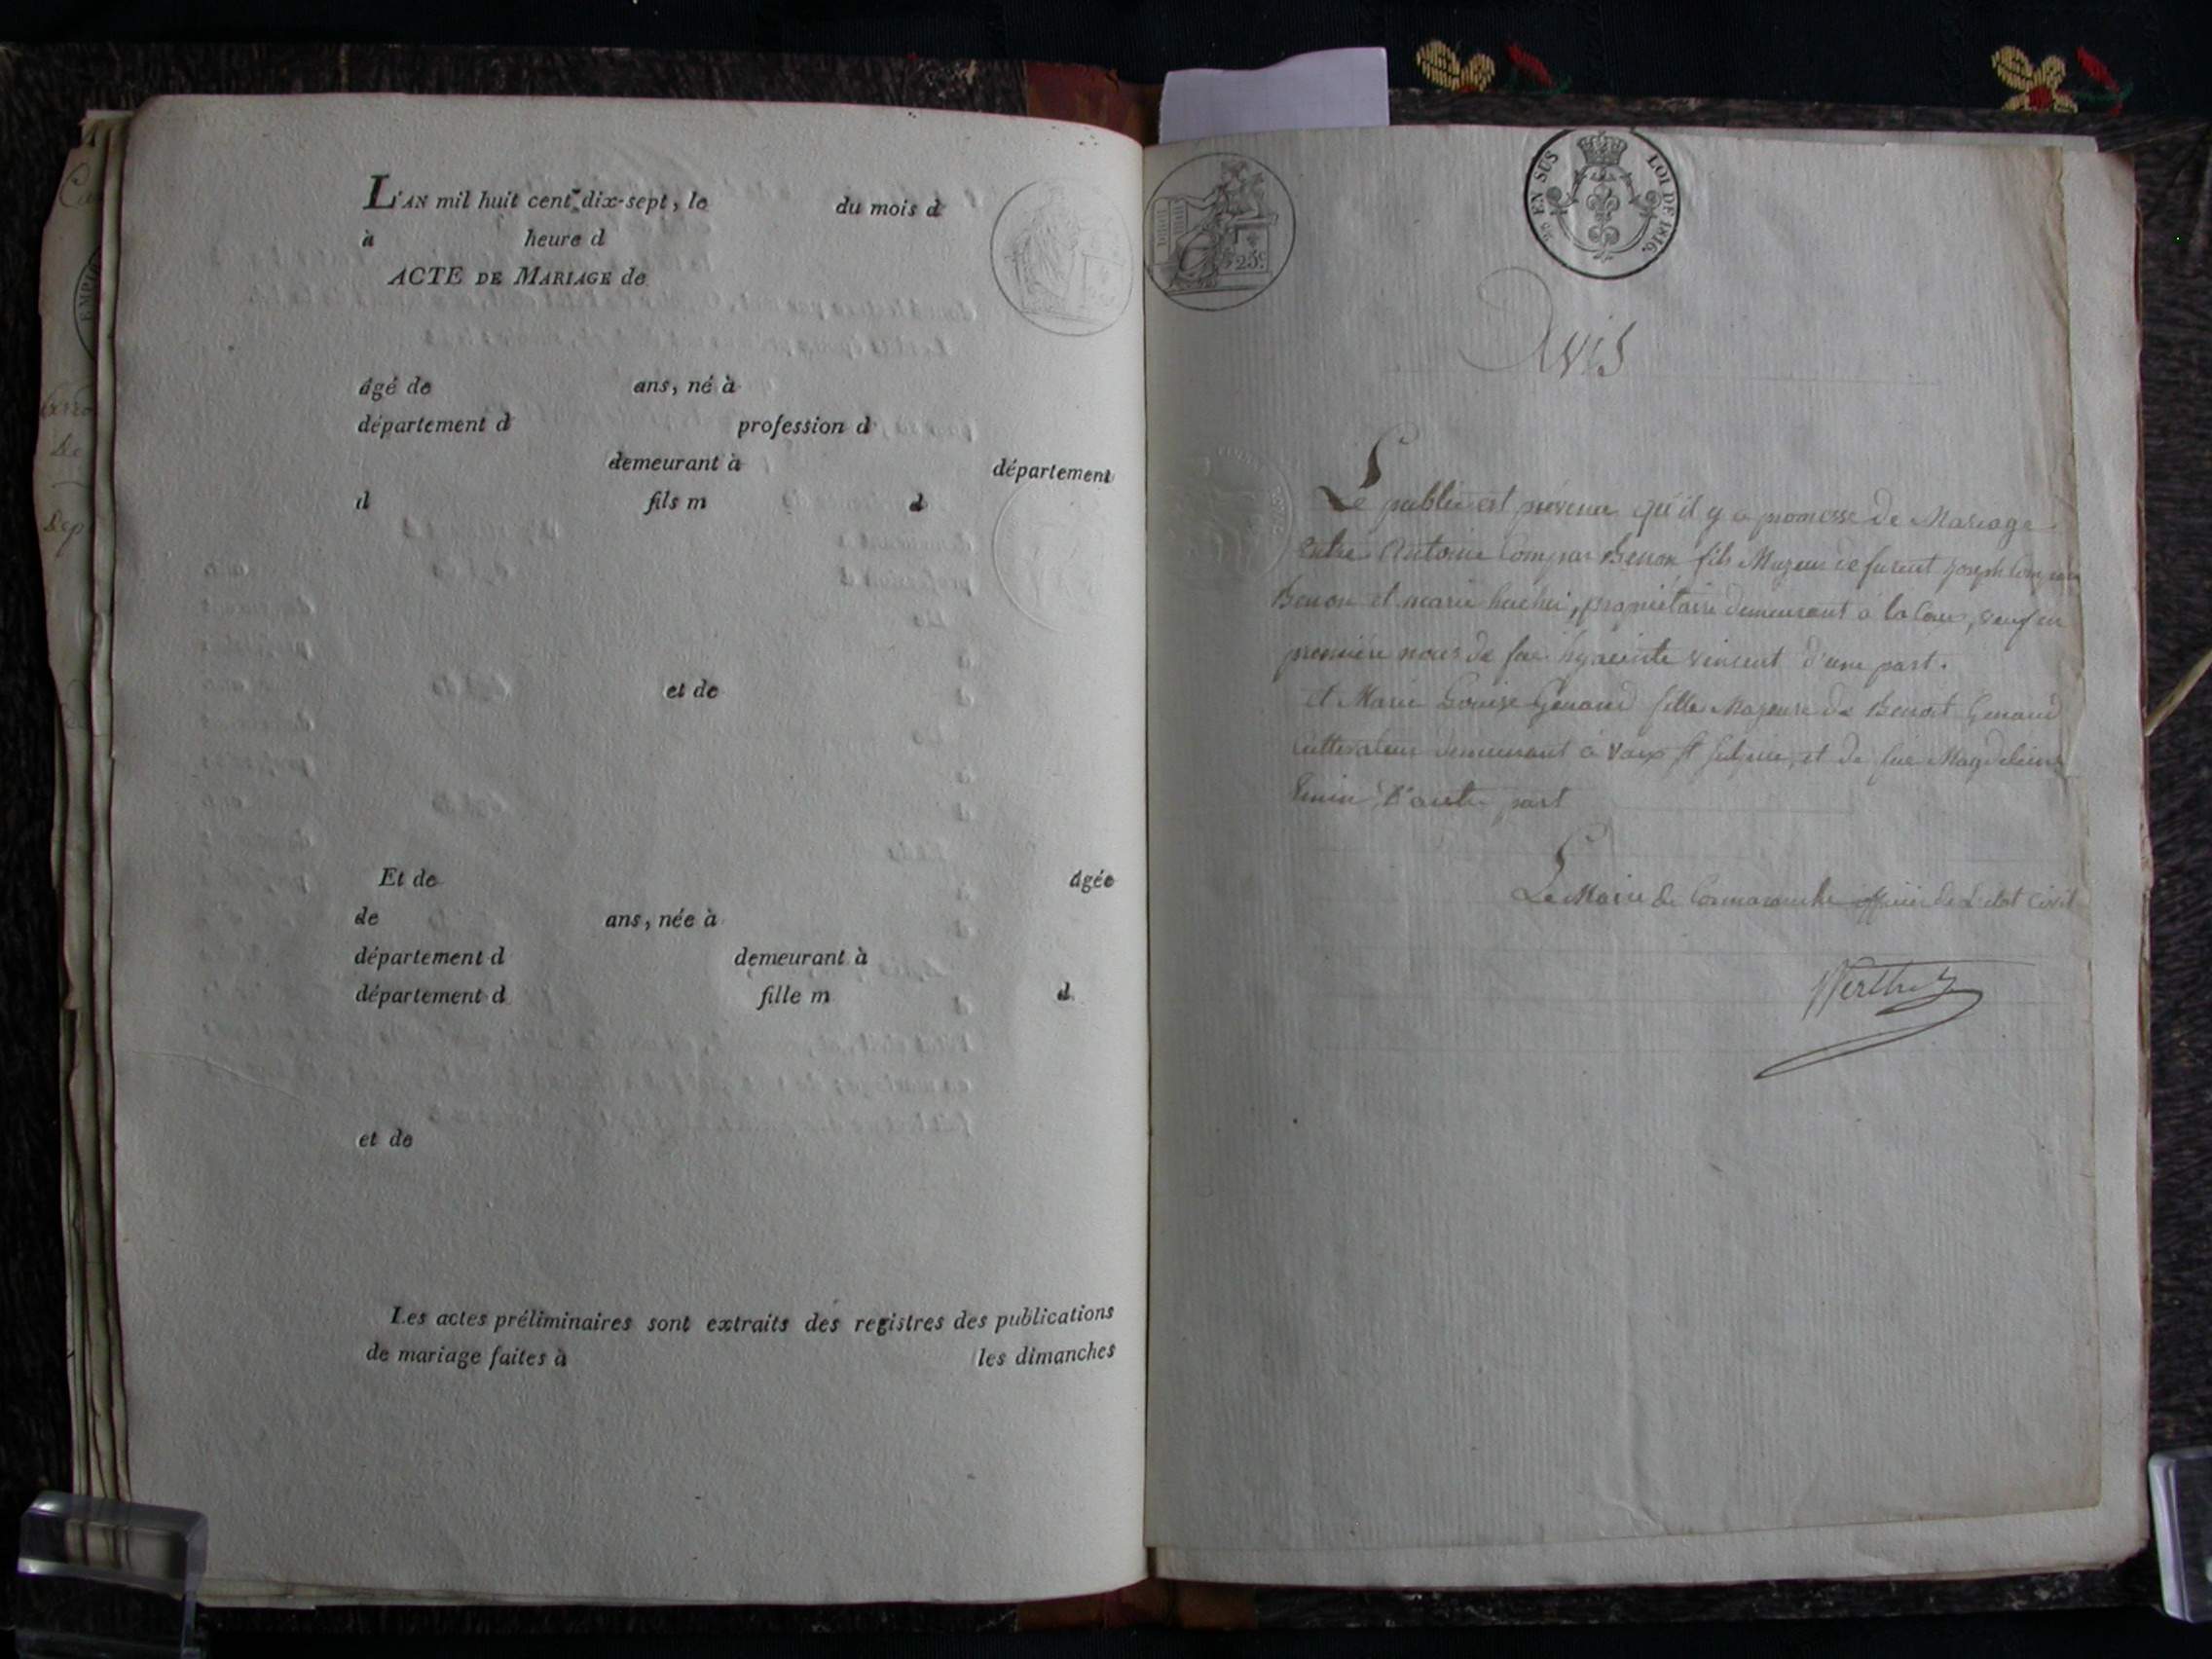 L'AN mil huit cent dix-sept, le du mois d
à heure d
ACTE DE MARIAGE de
âgé de ans, né à
département d profession d
demeurant à département
d fils m d
et de
Et de âgée
de ans, née à
département d demeurant à
département d fille m d
et de
Les actes préliminaires sont extraits des registres des publications
de mariage faites à les dimanches
EN SUS LOI DE 1816.
25c
Avis
Le public est prévenu qu'il y a promesse de Mariage
Entre Antoine Compar Benon fils Majeur de furent Joseph Compar
Benon et marie, propriétaire demeurant à la Cour, veuf en
première noces de fue hyacinte vincent d'une part.
et Marie Louise Genaud fille Majeure de Benoit Genaud
Cultivateur demeurant à Vaux St Sulpice, et de fue Magdeleine
D'autre part
Le Maire de Cormaranche officier de L'état Civil